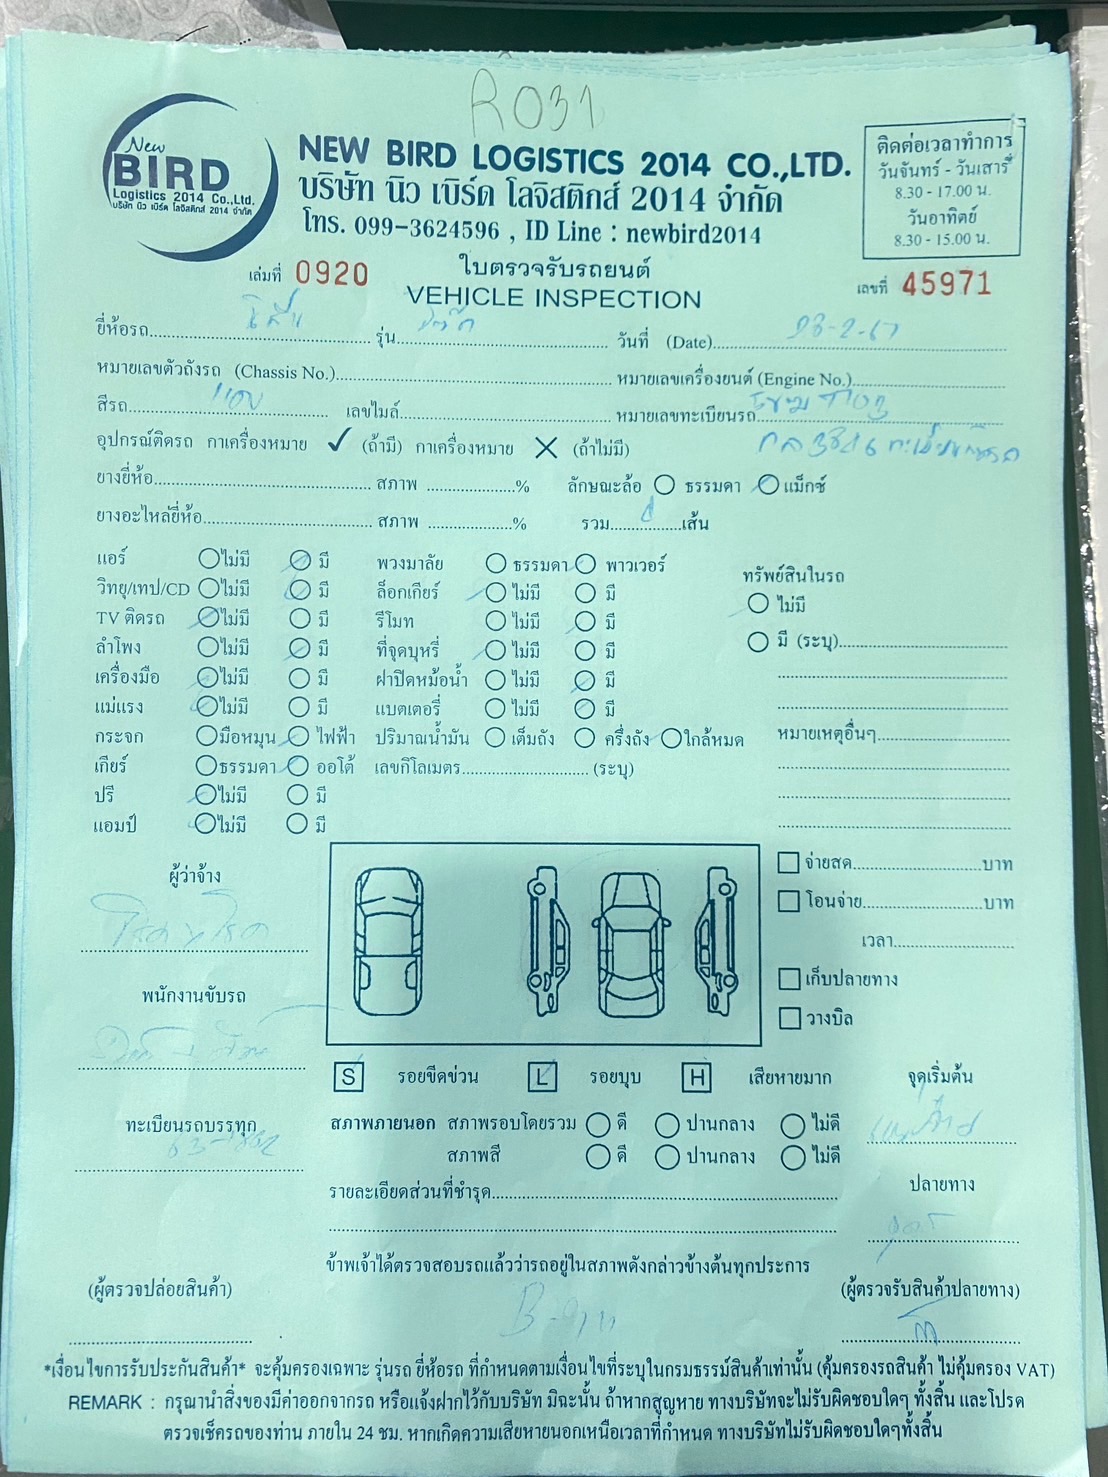 R031
New
BIRD
Logistics 2014 Co.,Ltd.
บริษัท นิว เบิร์ด โลจิสติกส์ 2014 จำกัด
NEW BIRD LOGISTICS 2014 CO.,LTD.
บริษัท นิว เบิร์ด โลจิสติกส์ 2014 จำกัด
โทร. 099-3624596 , ID Line : newbird2014
ติดต่อเวลาทำการ
วันจันทร์ - วันเสาร์
8.30 - 17.00 น.
วันอาทิตย์
8.30 - 15.00 น.
เล่มที่ 0920
ใบตรวจรับรถยนต์
VEHICLE INSPECTION
เลขที่ 45971
ยี่ห้อรถ รุ่น วันที่ (Date) 23-2-67
หมายเลขตัวถังรถ (Chassis No.) หมายเลขเครื่องยนต์ (Engine No.)
สีรถ แดง เลขไมล์ หมายเลขทะเบียนรถ
อุปกรณ์ติดรถ กาเครื่องหมาย ✓ (ถ้ามี) กาเครื่องหมาย ✕ (ถ้าไม่มี)
ยางยี่ห้อ สภาพ % ลักษณะล้อ ธรรมดา แม็กซ์
ยางอะไหล่ยี่ห้อ สภาพ % รวม เส้น
แอร์ ไม่มี มี พวงมาลัย ธรรมดา พาวเวอร์
วิทยุ/เทป/CD ไม่มี มี ล็อกเกียร์ ไม่มี มี
TV ติดรถ ไม่มี มี รีโมท ไม่มี มี
ลำโพง ไม่มี มี ที่จุดบุหรี่ ไม่มี มี
เครื่องมือ ไม่มี มี ฝาปิดหม้อน้ำ ไม่มี มี
แม่แรง ไม่มี มี แบตเตอรี่ ไม่มี มี
กระจก มือหมุน ไฟฟ้า ปริมาณน้ำมัน เต็มถัง ครึ่งถัง ใกล้หมด
เกียร์ ธรรมดา ออโต้ เลขกิโลเมตร (ระบุ)
ปรี ไม่มี มี
แอมป์ ไม่มี มี
ทรัพย์สินในรถ
ไม่มี
มี (ระบุ)
หมายเหตุอื่นๆ
ผู้ว่าจ้าง
พนักงานขับรถ
ทะเบียนรถบรรทุก
จ่ายสด บาท
โอนจ่าย บาท
เวลา
เก็บปลายทาง
วางบิล
S รอยขีดข่วน L รอยบุบ H เสียหายมาก
จุดเริ่มต้น
สภาพภายนอก สภาพรอบโดยรวม ดี ปานกลาง ไม่ดี
สภาพสี ดี ปานกลาง ไม่ดี
ปลายทาง
รายละเอียดส่วนที่ชำรุด
ข้าพเจ้าได้ตรวจสอบรถแล้วว่ารถอยู่ในสภาพดังกล่าวข้างต้นทุกประการ
(ผู้ตรวจปล่อยสินค้า) (ผู้ตรวจรับสินค้าปลายทาง)
*เงื่อนไขการรับประกันสินค้า* จะคุ้มครองเฉพาะ รุ่นรถ ยี่ห้อรถ ที่กำหนดตามเงื่อนไขที่ระบุในกรมธรรม์สินค้าเท่านั้น (คุ้มครองรถสินค้า ไม่คุ้มครอง VAT)
REMARK : กรุณานำสิ่งของมีค่าออกจากรถ หรือแจ้งฝากไว้กับบริษัท มิฉะนั้น ถ้าหากสูญหาย ทางบริษัทจะไม่รับผิดชอบใดๆ ทั้งสิ้น และโปรด
ตรวจเช็ครถของท่าน ภายใน 24 ชม. หากเกิดความเสียหายนอกเหนือเวลาที่กำหนด ทางบริษัทไม่รับผิดชอบใดๆทั้งสิ้น